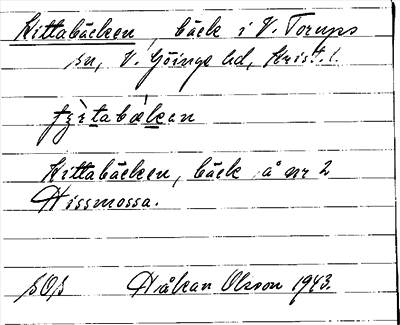 Kittabäcken, bäck i V. Torups
sn, V. Göinge hd, Krist. l.
Kittabäcken, bäck å nr 2
Hissmossa.
Håkan Olsson 1943.